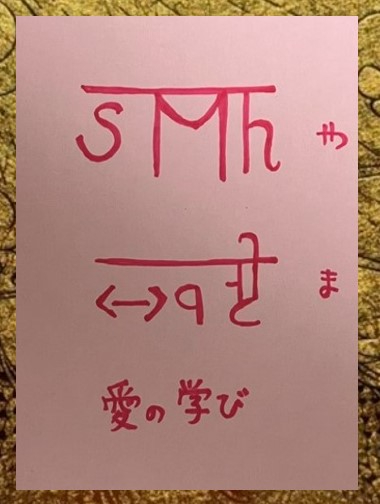 sMh や
↔q ま
愛の学び